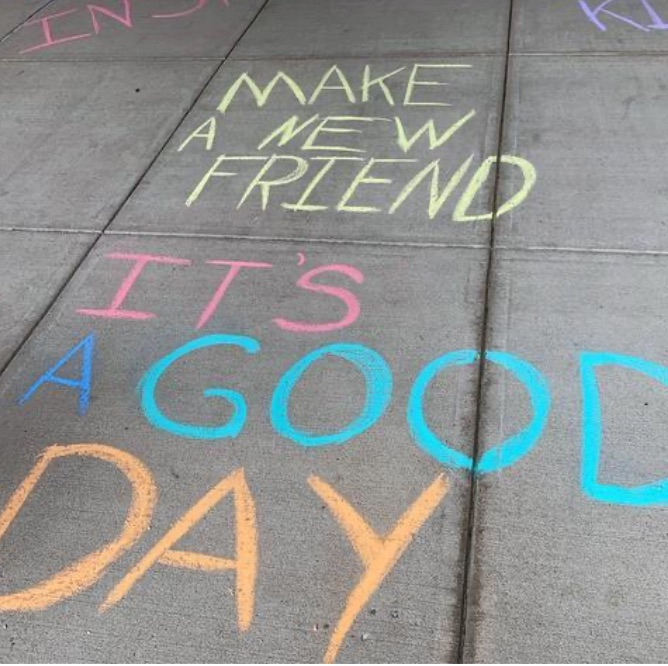 MAKE
A NEW
FRIEND
IT'S
A GOOD
DAY